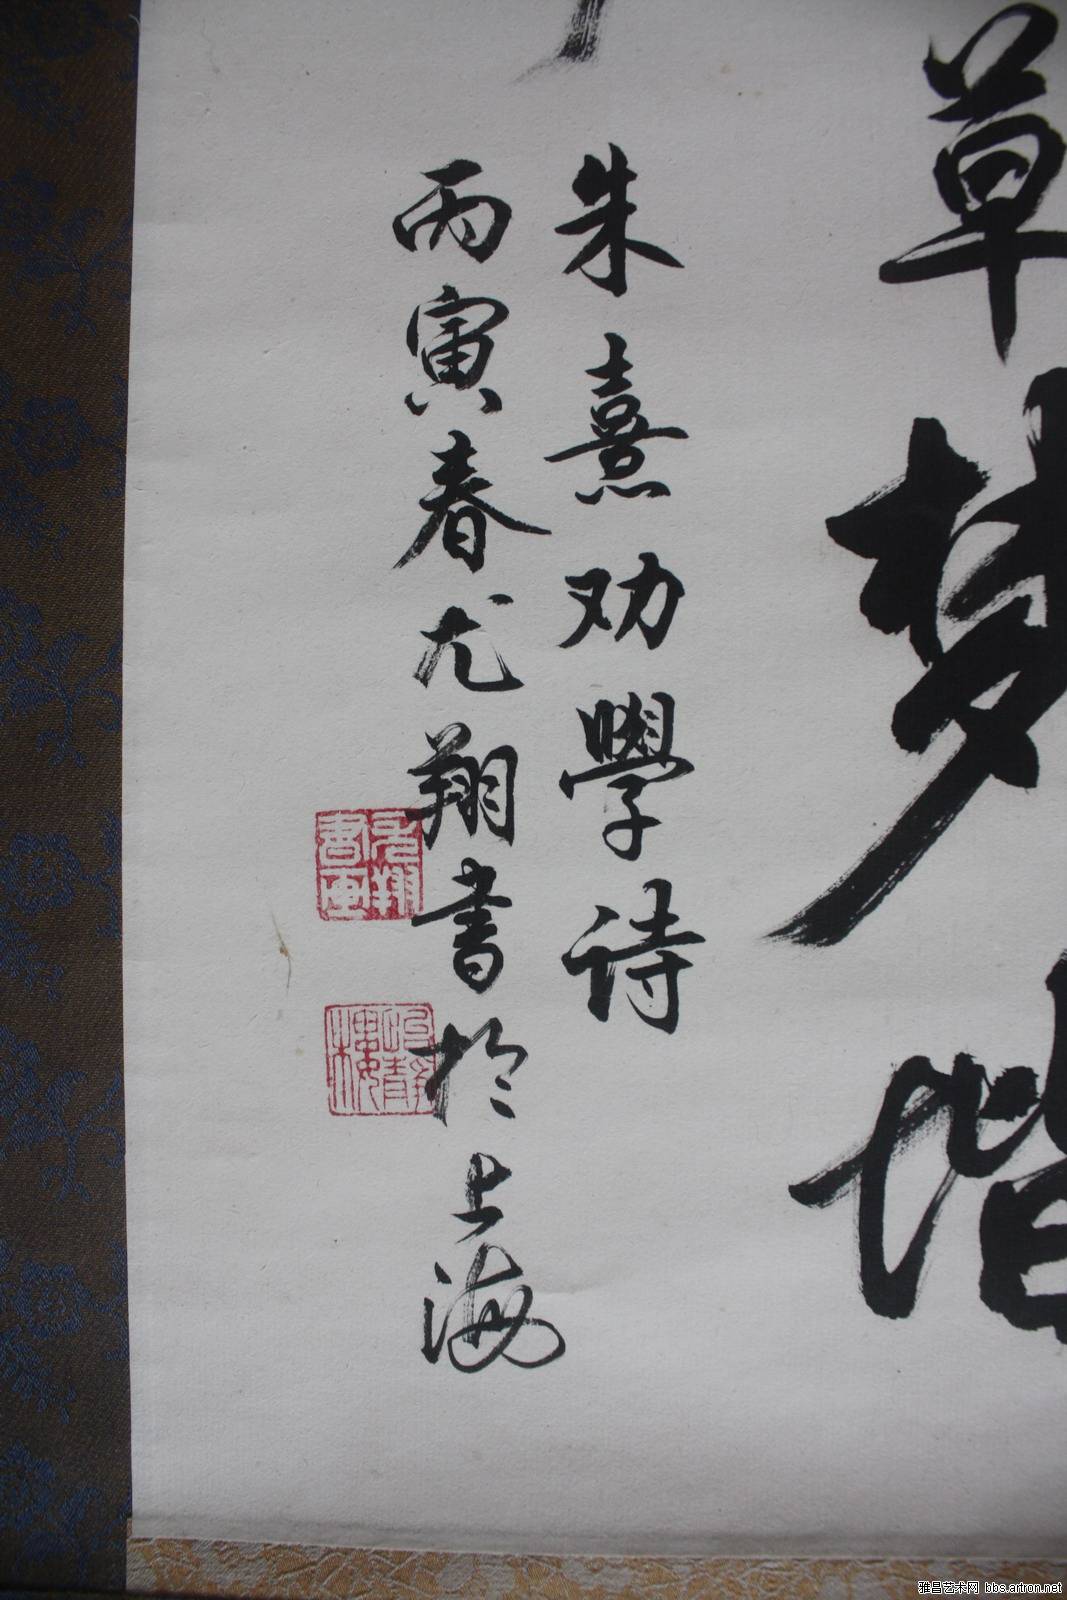 草梦階
朱熹劝學诗
丙寅春尤翔书於上海
尤翔書画
雅昌艺术网 bbs.artron.net